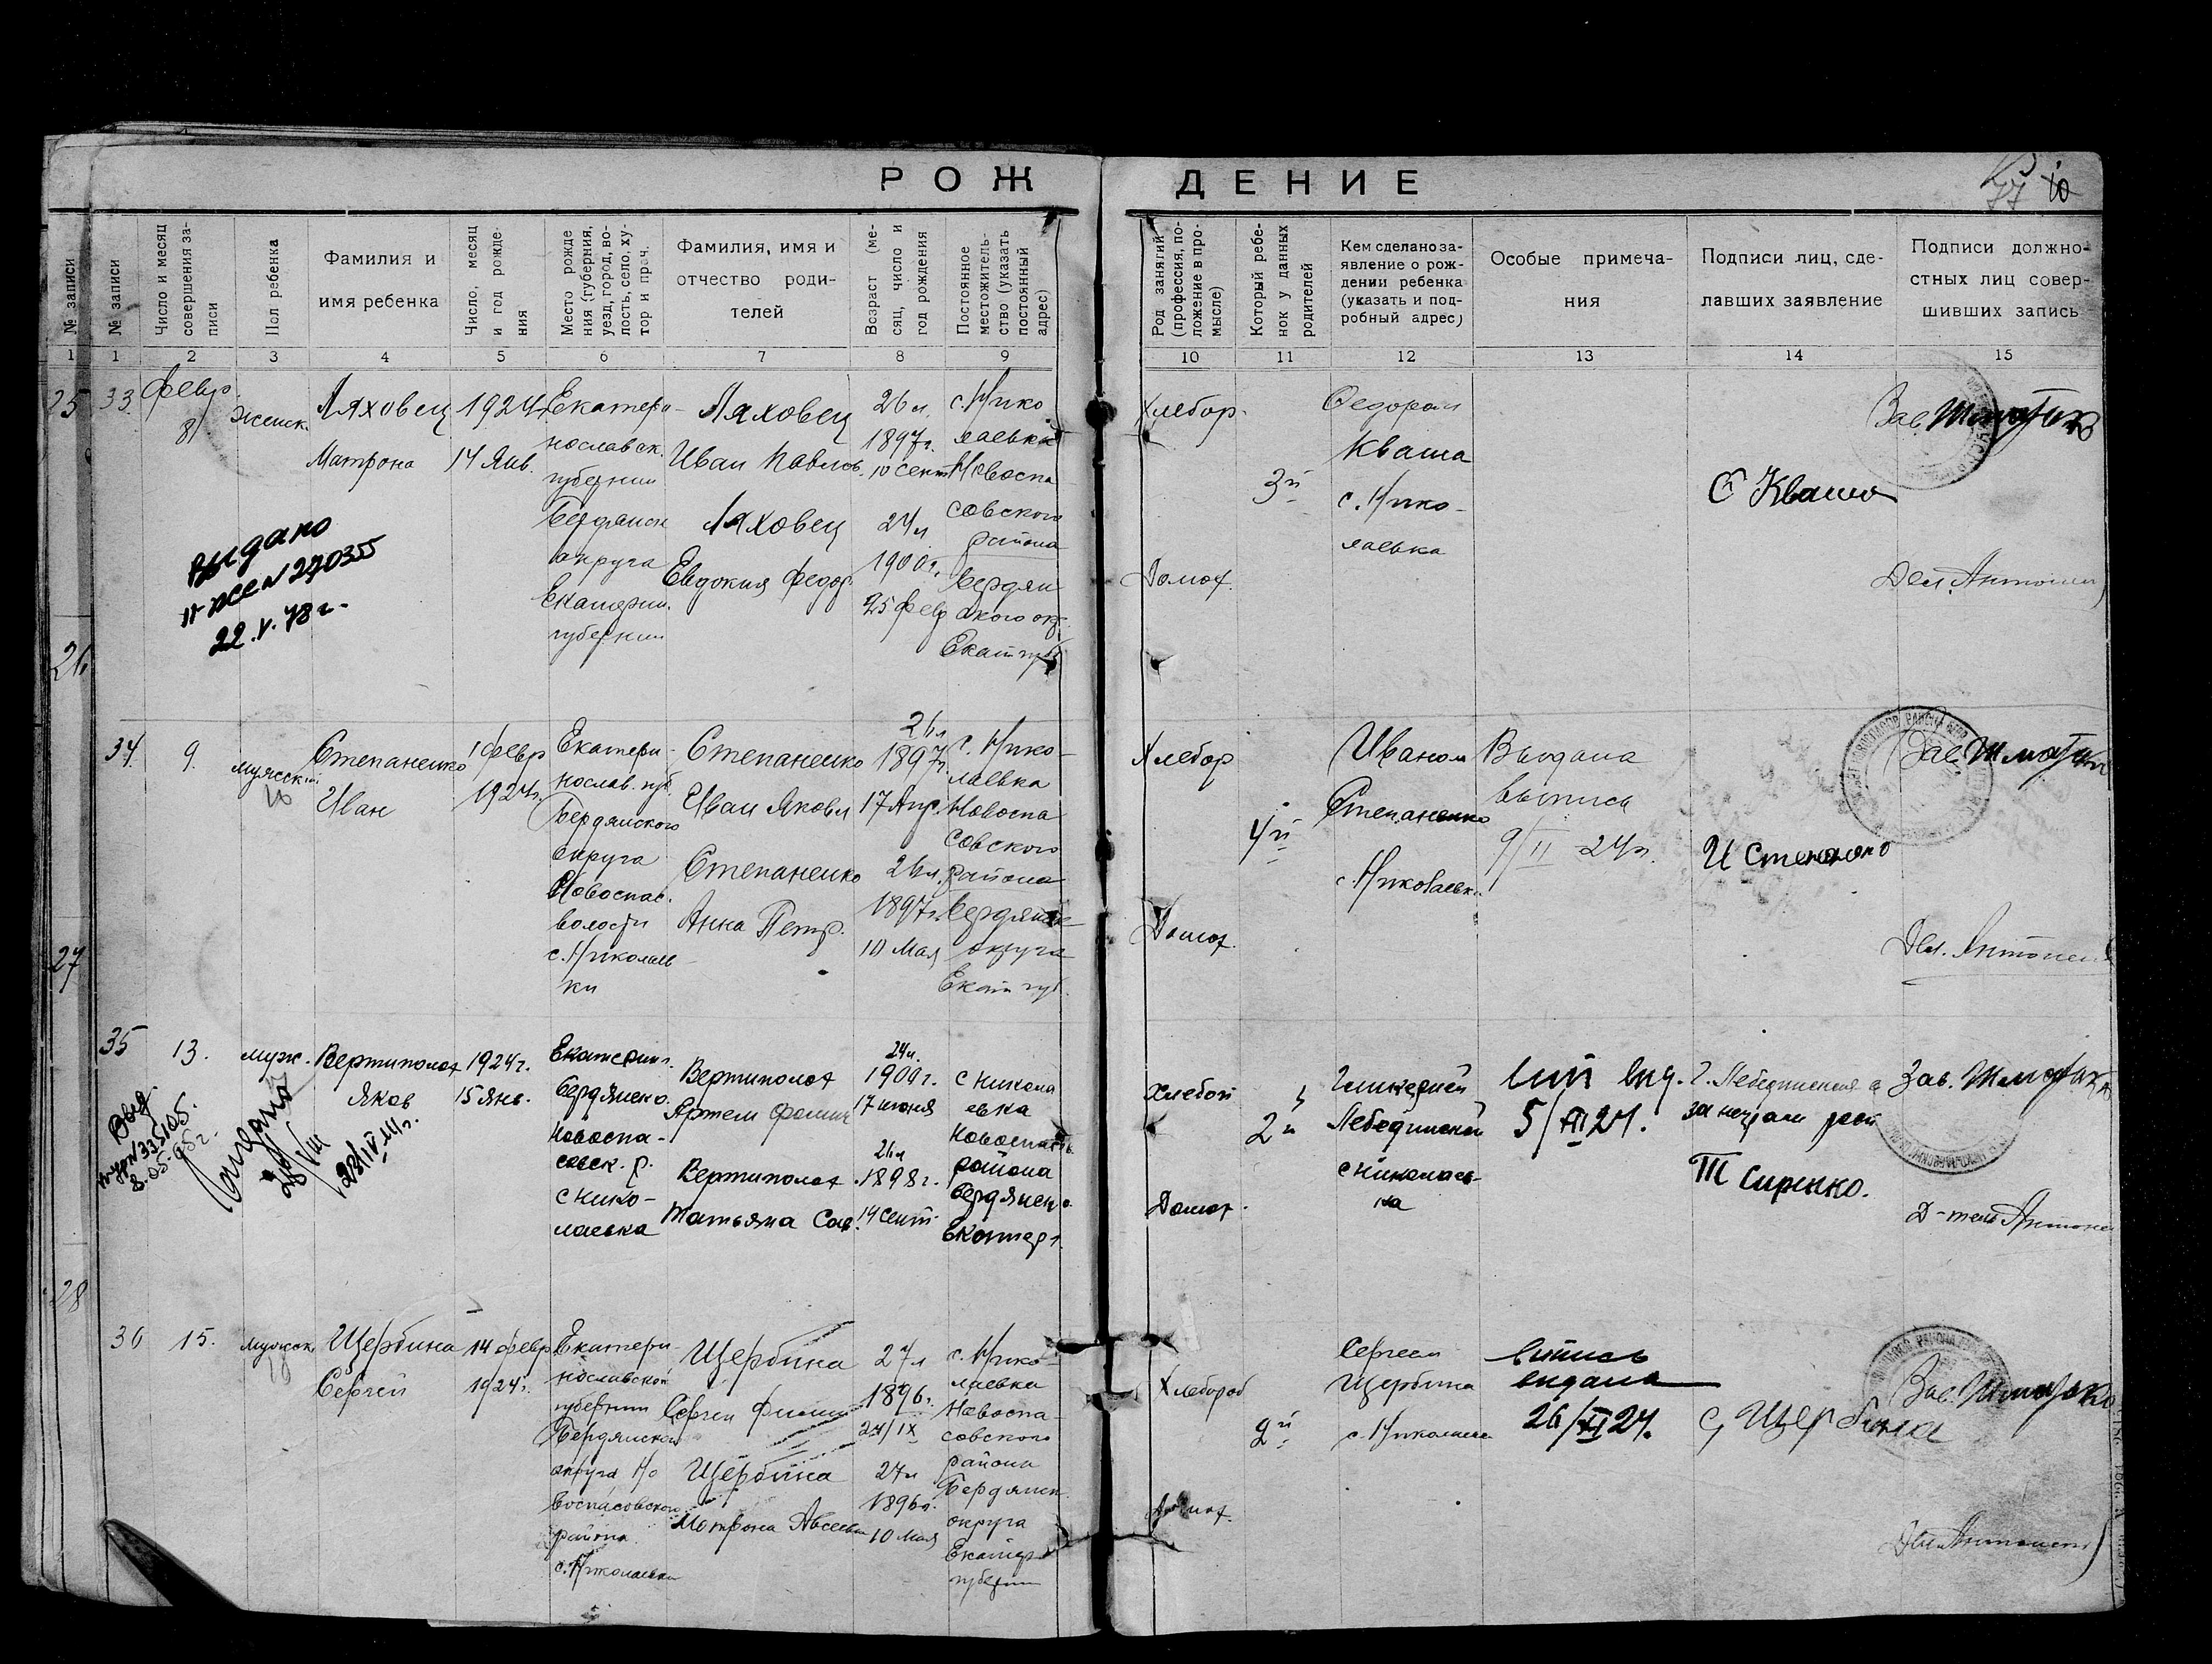 РОЖДЕНИЕ
№ записи
№ записи
Число и месяц совершения записи
Пол ребенка
Фамилия и
имя ребенка
Число, месяц
и год рожде-
ния
Место рожде
ния (губерния,
уезд, город, во-
лость, село, ху-
тор и прач.
Фамилия, имя и
отчество роди-
телей
Возраст (ме-
сяц, число и
год рождения
Постоянное
местожитель-
ство (указать
постоянный
адрес)
Род занятий
(профессия, по-
ложение в про-
мысле)
Который ребе-
нок у данных
родителей
Кем сделано за-
явление о рож-
дении ребенка
(указать и под-
робный адрес)
Особые примеча-
ния
Подписи лиц, сде-
лавших заявление
Подписи должно-
стных лиц совер-
шивших запись
1 1 2 3 4 5 6 7 8 9 10 11 12 13 14 15
25
33.
февр.
8
женск.
Ляховец
Матрона
1924г.
14 Янв.
Екатери-
нославск.
губернии
Бердянск
округа
Екатерин.
губернии
Ляховец
Иван Павлов.
Ляховец
Евдокия Федор.
26 л.
1897г.
10 сент.
24 л
1900г.
25 февр
с. Нико
лаевка
Новоспа
совского
района
Бердян
ского окр.
Екат губ
Хлебор.
Домох.
3й
Федором
Кваша
с. Нико-
лаевка
Кваша
Зав.
Дел. Антонен
выдано
II же N 270355
22.V.78г.
26
34.
9.
мужской
Степаненко
Иван
1 февр
1924г.
Екатери-
нослав. губ.
Бердянского
округа
Новоспас.
волости
с. Николаев
ки
Степаненко
Иван Яковл
Степаненко
Анна Петр.
26 л
1897г.
17 Апр.
26 л.
1897г.
10 Мая
с. Нико-
лаевка
Новоспа
совского
района
Бердянск
округа
Екат губ.
Хлебор
Домох.
4й
Иваном
Степаненко
с. Николаевк.
Выдана
выпись
9/II 24г.
И Степанено
Зав.
Дел. Антонен
27
35
13.
муж.
Вертиполох
Яков
1924г.
15 янв.
Екатерин.
Бердянско.
Новоспа-
совск. р.
с Нико-
лаевка
Вертиполох
Артем Фомич
Вертиполох
Татьяна Сав.
24 л.
1900г.
17 июня
26 л
1898г.
14 сент.
с Никола
евка
Новоспасов.
района
Бердянск
Екатер.
Хлебоп
Домох.
2й
Лебединской
с Николаев-
ка
5/XII 24.
Г. Лебединская а
за неграм росп
Т Сиренко.
Зав.
Д-тель Антонен
Выд
N 335105.
8.05.95г.
28/IV
28
36
15.
мужск.
Щербина
Сергей
14 февр
1924г.
Екатери-
нославской
губернии
Бердянской
округа Но
воспасовского
района
с. Николаевка
Щербина
Сергей Филип
Щербина
Матрона Авсеевн
27 л
1896г.
24/IX
27 л
1896г.
10 Мая
с. Нико-
лаевка
Новоспа-
совского
района
Бердянск.
округа
Екатер
губернии
Хлебороб
Домох.
2й
Сергеем
Щербина
с. Николаевка
выпись
выдана
26/XII 24.
С Щербина
Зав.
Дел. Антоненко